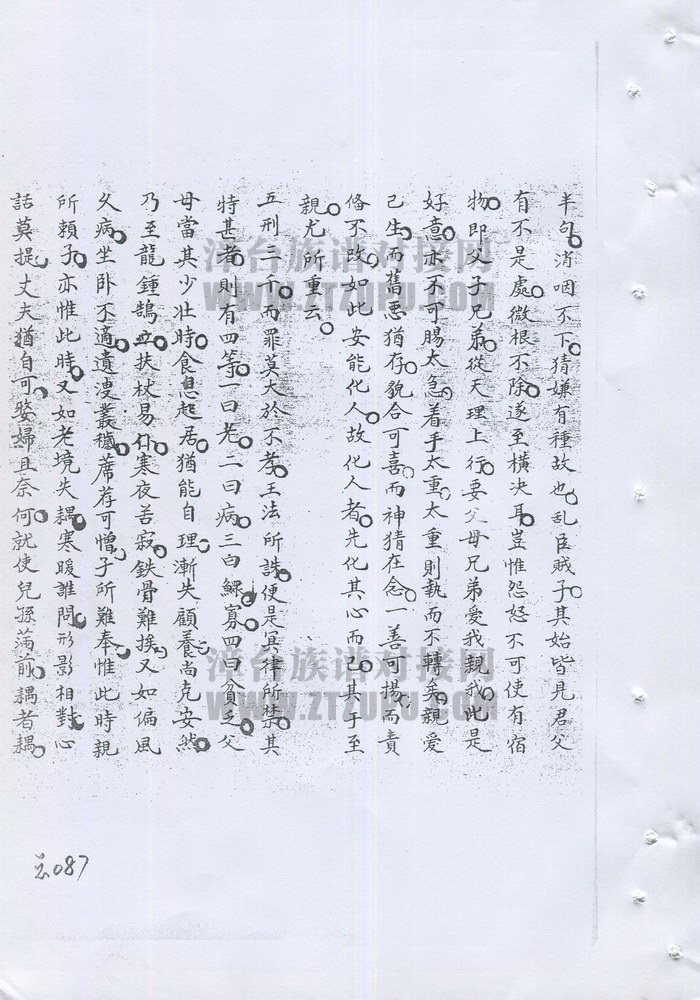 半句消咽不下猜嫌有種故也乱臣賊子其始皆見君父
有不是處微根不除遂至橫决耳豈惟怨怒不可使有宿
物即父子兄弟從天理上行要父母兄弟愛我親我此是
好意亦不可腸太急着手太重太重則執而不轉矣親愛
己生而舊悪猶存貌合可喜而神猜在念一善可揚而責
俻不改如此安能化人故化人者先化其心而己其于至
親尤所重云
五刑三千而罪莫大於不孝王法所誅便是冥律所禁其
特甚者則有四等一曰老二曰病三曰鰥寡四曰貧乏父
母當其少壯時食息起居猶能自理漸失顧養尚克安然
乃至龍鍾鵠立扶杖易仆寒夜苦寂鉄骨難挨又如偏風
久病坐卧不適遺溲叢穢蓆荐可憎子所難奉惟此時親
所賴子亦惟此時又如老境失耦寒暖誰問形影相對心
話莫提丈夫猶自可嫠婦且奈何就使兒孫滿前耦者耦
总087
漳台族谱对接网
WWW.ZTZUPU.COM
漳台族谱对接网
WWW.ZTZUPU.COM